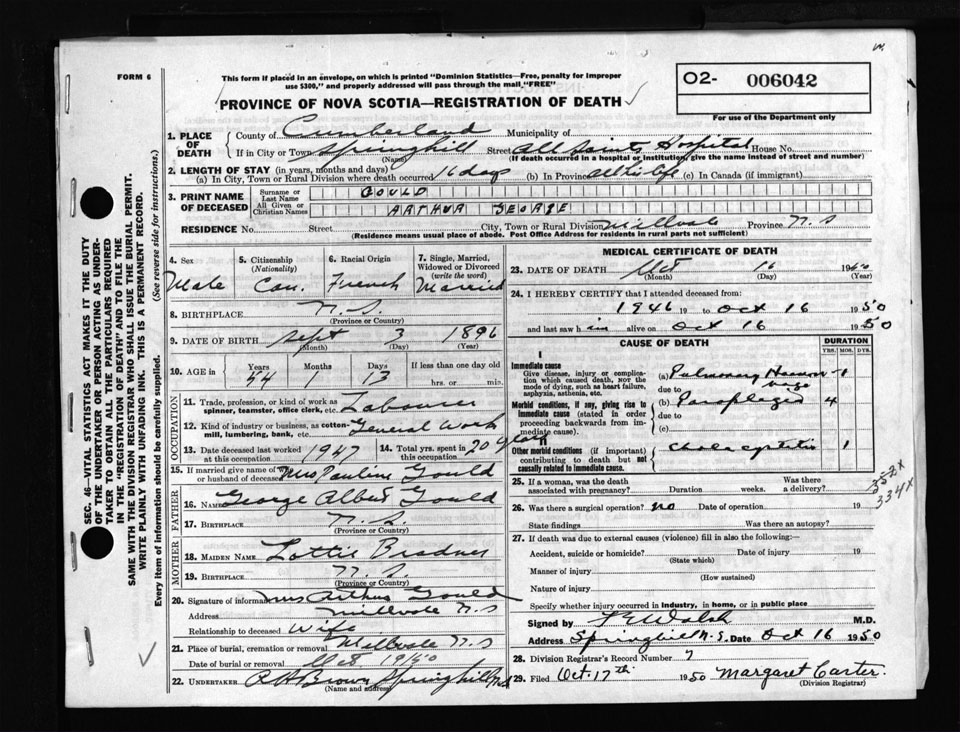 FORM 6
This form if placed in an envelope, on which is printed "Dominion Statistics—Free, penalty for improper
use $300," and properly addressed will pass through the mail, "FREE"
PROVINCE OF NOVA SCOTIA—REGISTRATION OF DEATH
O2- 006042
For use of the Department only
SEC. 46—VITAL STATISTICS ACT MAKES IT THE DUTY
OF THE UNDERTAKER OR PERSON ACTING AS UNDER-
TAKER TO OBTAIN ALL THE PARTICULARS REQUIRED
IN THE "REGISTRATION OF DEATH" AND TO FILE THE
SAME WITH THE DIVISION REGISTRAR WHO SHALL ISSUE THE BURIAL PERMIT.
WRITE PLAINLY WITH UNFADING INK. THIS IS A PERMANENT RECORD.
Every item of information should be carefully supplied. (See reverse side for instructions.)
1. PLACE OF DEATH County of Cumberland Municipality of
If in City or Town Springhill Street All Saints Hospital House No.
(Name) (If death occurred in a hospital or institution, give the name instead of street and number)
2. LENGTH OF STAY (in years, months and days)
(a) In City, Town or Rural Division where death occurred 16 days (b) In Province all his life (c) In Canada (if immigrant)
3. PRINT NAME OF DECEASED Surname or Last Name GOULD
All Given or Christian Names ARTHUR GEORGE
RESIDENCE No. Street City, Town or Rural Division Millvale Province N.S
(Residence means usual place of abode. Post Office Address for residents in rural parts not sufficient)
4. Sex Male
5. Citizenship (Nationality) Can.
6. Racial Origin French
7. Single, Married, Widowed or Divorced (write the word) Married
8. BIRTHPLACE N.S.
(Province or Country)
9. DATE OF BIRTH Sept 3 1896
(Month) (Day) (Year)
10. AGE in Years 54 Months 1 Days 13 If less than one day hrs. or min.
OCCUPATION
11. Trade, profession, or kind of work as spinner, teamster, office clerk, etc. Labourer
12. Kind of industry or business, as cotton-mill, lumbering, bank, etc. General Work
13. Date deceased last worked at this occupation 1947 14. Total yrs. spent in this occupation 20 years
15. If married give name of wife or husband of deceased Mrs Pauline Gould
FATHER
16. NAME George Albert Gould
17. BIRTHPLACE N.S.
(Province or Country)
MOTHER
18. MAIDEN NAME Lottie
19. BIRTHPLACE N.S.
(Province or Country)
20. Signature of informant Mrs Arthur Gould
Address Millvale N.S
Relationship to deceased Wife
21. Place of burial, cremation or removal Millvale N.S
Date of burial or removal Oct 19/50
22. UNDERTAKER Brown Springhill N.S
(Name and address)
MEDICAL CERTIFICATE OF DEATH
23. DATE OF DEATH Oct 16 1950
(Month) (Day) (Year)
24. I HEREBY CERTIFY that I attended deceased from:
1946 19 to Oct 16 1950
and last saw him alive on Oct 16 1950
CAUSE OF DEATH DURATION
YRS. MOS. DYS.
I
Immediate cause
Give disease, injury or complication which caused death, not the mode of dying, such as heart failure, asphyxia, asthenia, etc.
(a) Pulmonary Hemorrhage 1
due to
Morbid conditions, if any, giving rise to immediate cause (stated in order proceeding backwards from immediate cause).
(b) 4
due to
(c)
II
Other morbid conditions (if important) contributing to death but not causally related to immediate cause.
Cholecystitis 1
352X
334X
25. If a woman, was the death associated with pregnancy? Duration weeks. Was there a delivery?
26. Was there a surgical operation? no Date of operation 19
State findings Was there an autopsy?
27. If death was due to external causes (violence) fill in also the following:—
Accident, suicide or homicide? Date of injury 19
(State which)
Manner of injury
(How sustained)
Nature of injury
Specify whether injury occurred in industry, in home, or in public place
Signed by Walsh M.D.
Address Springhill N.S. Date Oct 16 1950
28. Division Registrar's Record Number 7
29. Filed Oct. 17th 1950 Margaret Carter.
(Division Registrar)